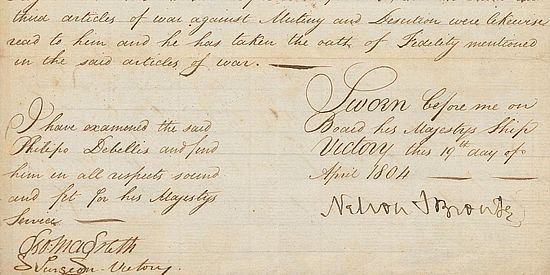 third articles of war against Mutiny and Desertion were likewise
read to him and he has taken the oath of Fidelity mentioned
in the said articles of war.
I have examined the said
Philipo Debellis and find
him in all respects sound
and fit for his Majestys
Service
Geo: Magrath
Surgeon - Victory.
Sworn before me on
Board his Majestys Ship
Victory this 19th day of
April 1804
Nelson & Bronte